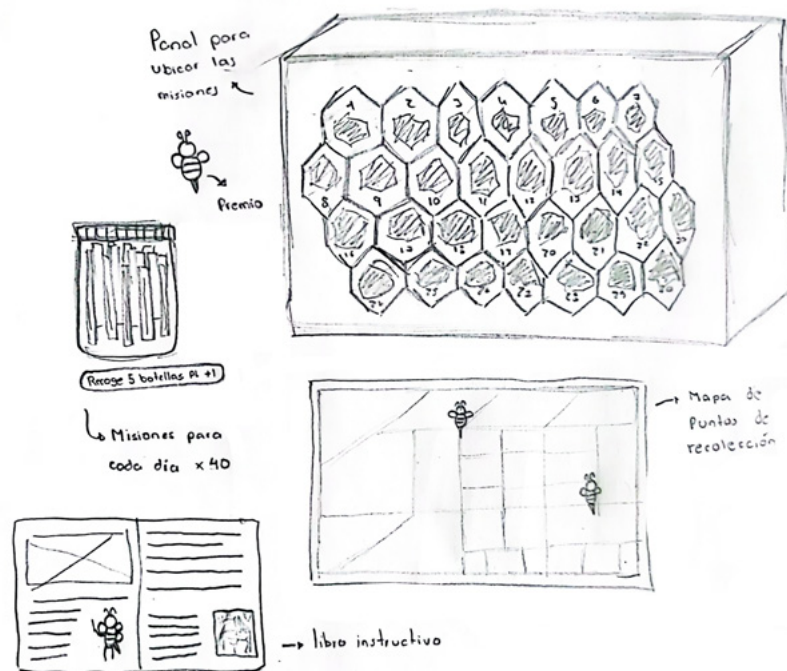 Panal para
ubicar las
misiones
Premio
1 2 3 4 5 6 7
8 9 10 11 12 13 14 15
16 17 18 19 20 21 22 23
24 25 26 27 28 29 30
Recoge 5 botellas +1
Misiones para
cada día x 40
Mapa de
Puntos de
recolección
libro instructivo